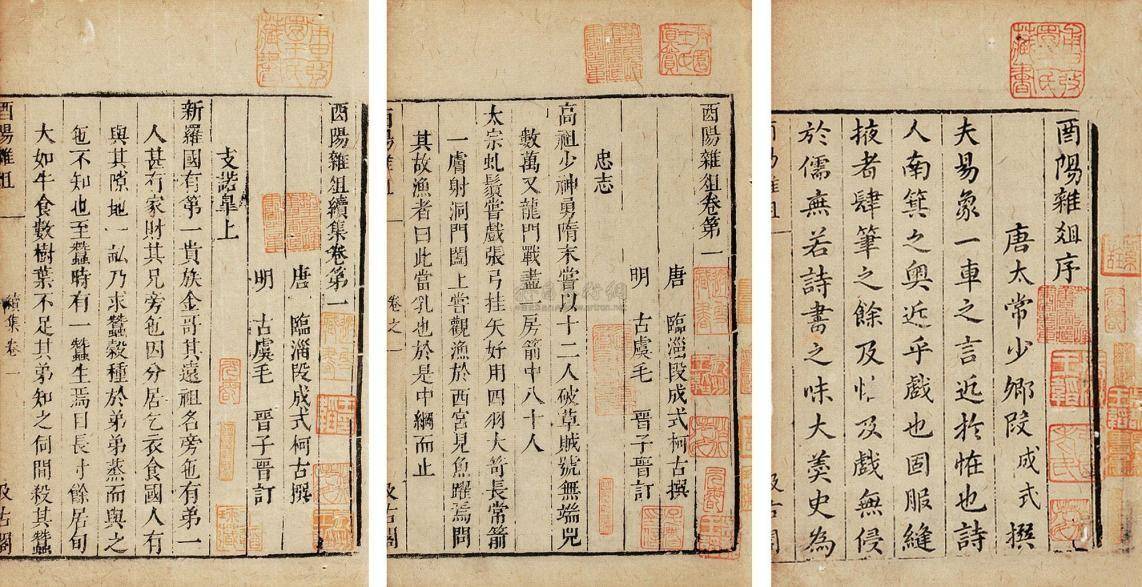 酉陽雜俎序
唐太常少卿段成式撰
夫易象一車之言近於怪也詩
人南箕之奧近乎戲也固服縫
掖者肆筆之餘及怪及戲無侵
於儒無若詩書之味大羹史為
酉陽雜俎卷第一
唐 臨淄段成式柯古撰
明 古虞毛 晉子晉訂
忠志
高祖少神勇隋末嘗以十二人破草賊號無端兒
數萬又龍門戰盡一房箭中八十人
太宗虬鬚嘗戲張弓挂矢好用四羽大笴長常箭
一膚射洞門闔上嘗觀漁於西宮見魚躍焉問
其故漁者曰此當乳也於是中網而止
酉陽雜俎
卷之一
汲古閣
酉陽雜俎續集卷第一
唐 臨淄段成式柯古撰
明 古虞毛 晉子晉訂
支諾皐上
新羅國有第一貴族金哥其遠祖名旁㐌有弟一
人甚有家財其兄旁㐌因分居乞衣食國人有
與其隙地一畝乃求蠶穀種於弟弟蒸而與之
㐌不知也至蠶時有一蠶生焉目長寸餘居旬
大如牛食數樹葉不足其弟知之伺間殺其蠶
酉陽雜俎
續集卷一
汲古閣